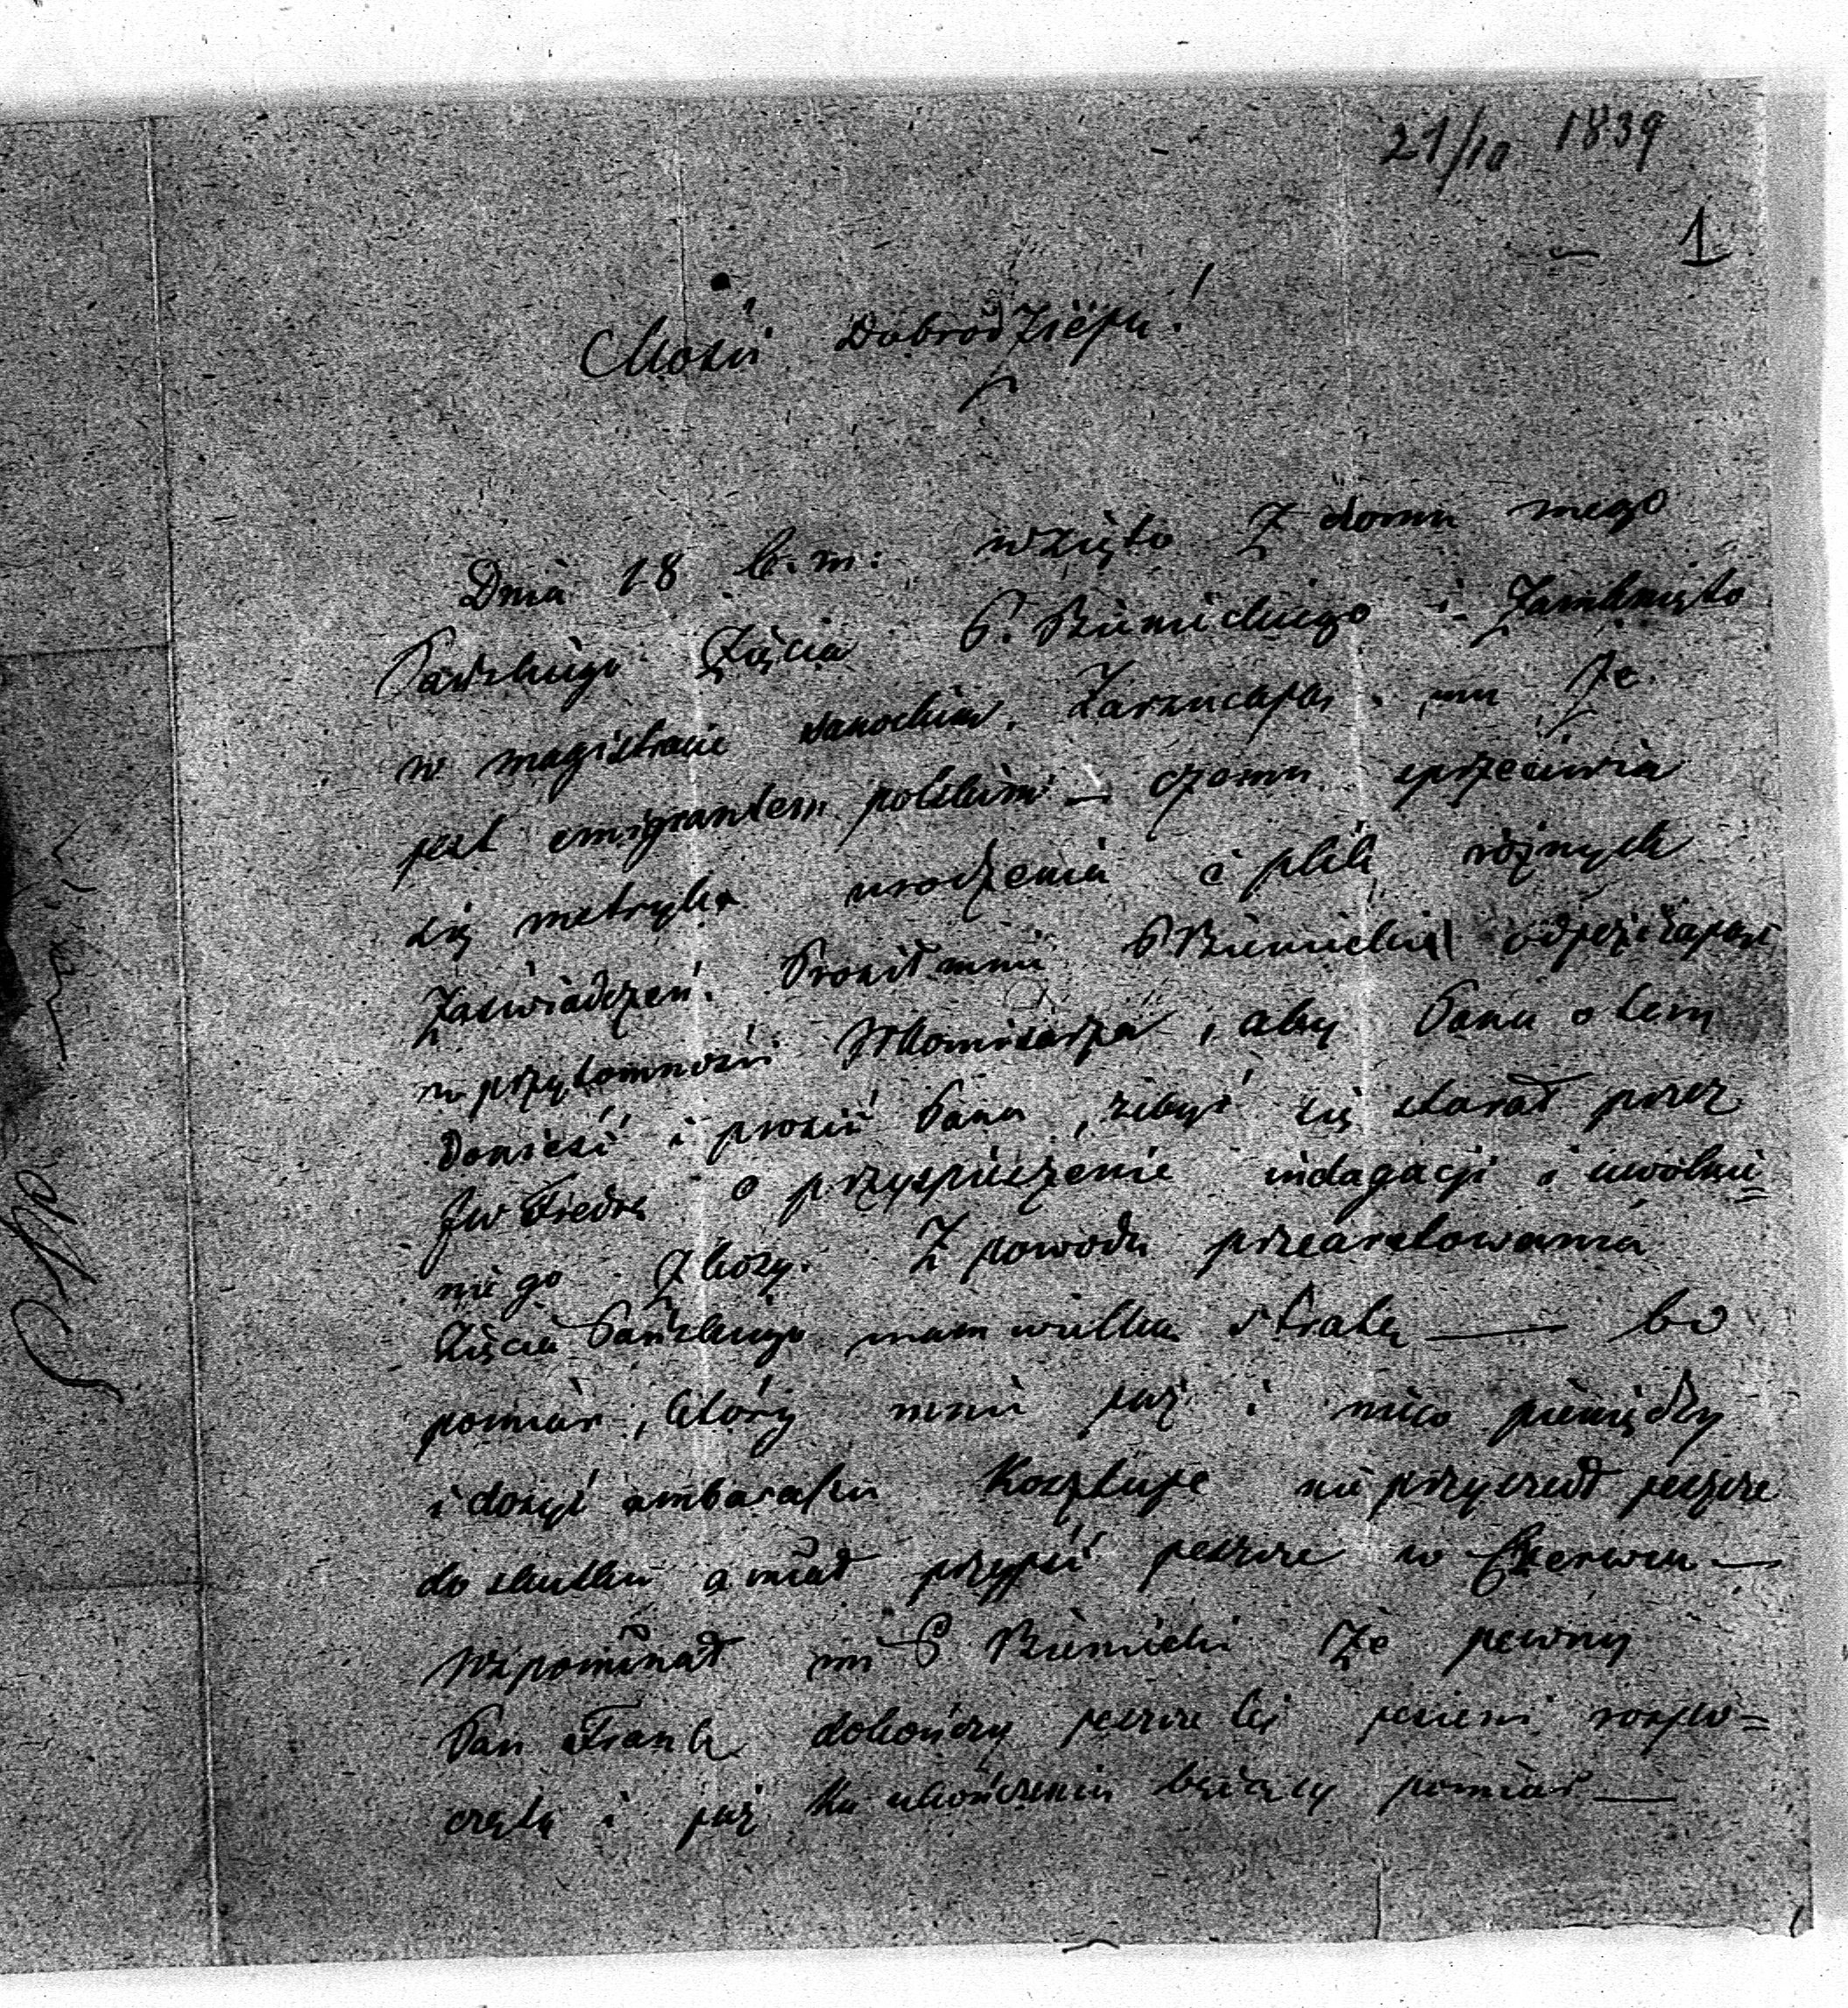 21/10 1839
1
Mości Dobrodzieju!
Dnia 18 b. m: wzięto z domu mego
Pańskiego Zięcia P. i zamknięto
w magistracie sanockim, zarzucając mu że
jest emigrantem polskim — czemu sprzeciwia
się metryka urodzenia i plik różnych
zaświadczeń. Prosił mnie P odjeżdżając
w przytomności Komisarza, aby Panu o tem
donieść i prosić Pana, żebyś się starał przez
JW Fredrę o przyspieszenie indagacji i uwolnie=
nie go z kozy. Z powodu przearesztowania
Zięcia Pańskiego mam wielką stratę — bo
pomiar, który mnie już i nieco pieniędzy
i dosyć ambarasu kosztuje nie przyszedł jeszcze
do skutku a miał przyjść jeszcze w Czerwcu —
Wspominał mi P że pewny
Pan Frank dokończy jeszcze tej jesieni rozpo=
częty i już ku ukończeniu bieżący pomiar —